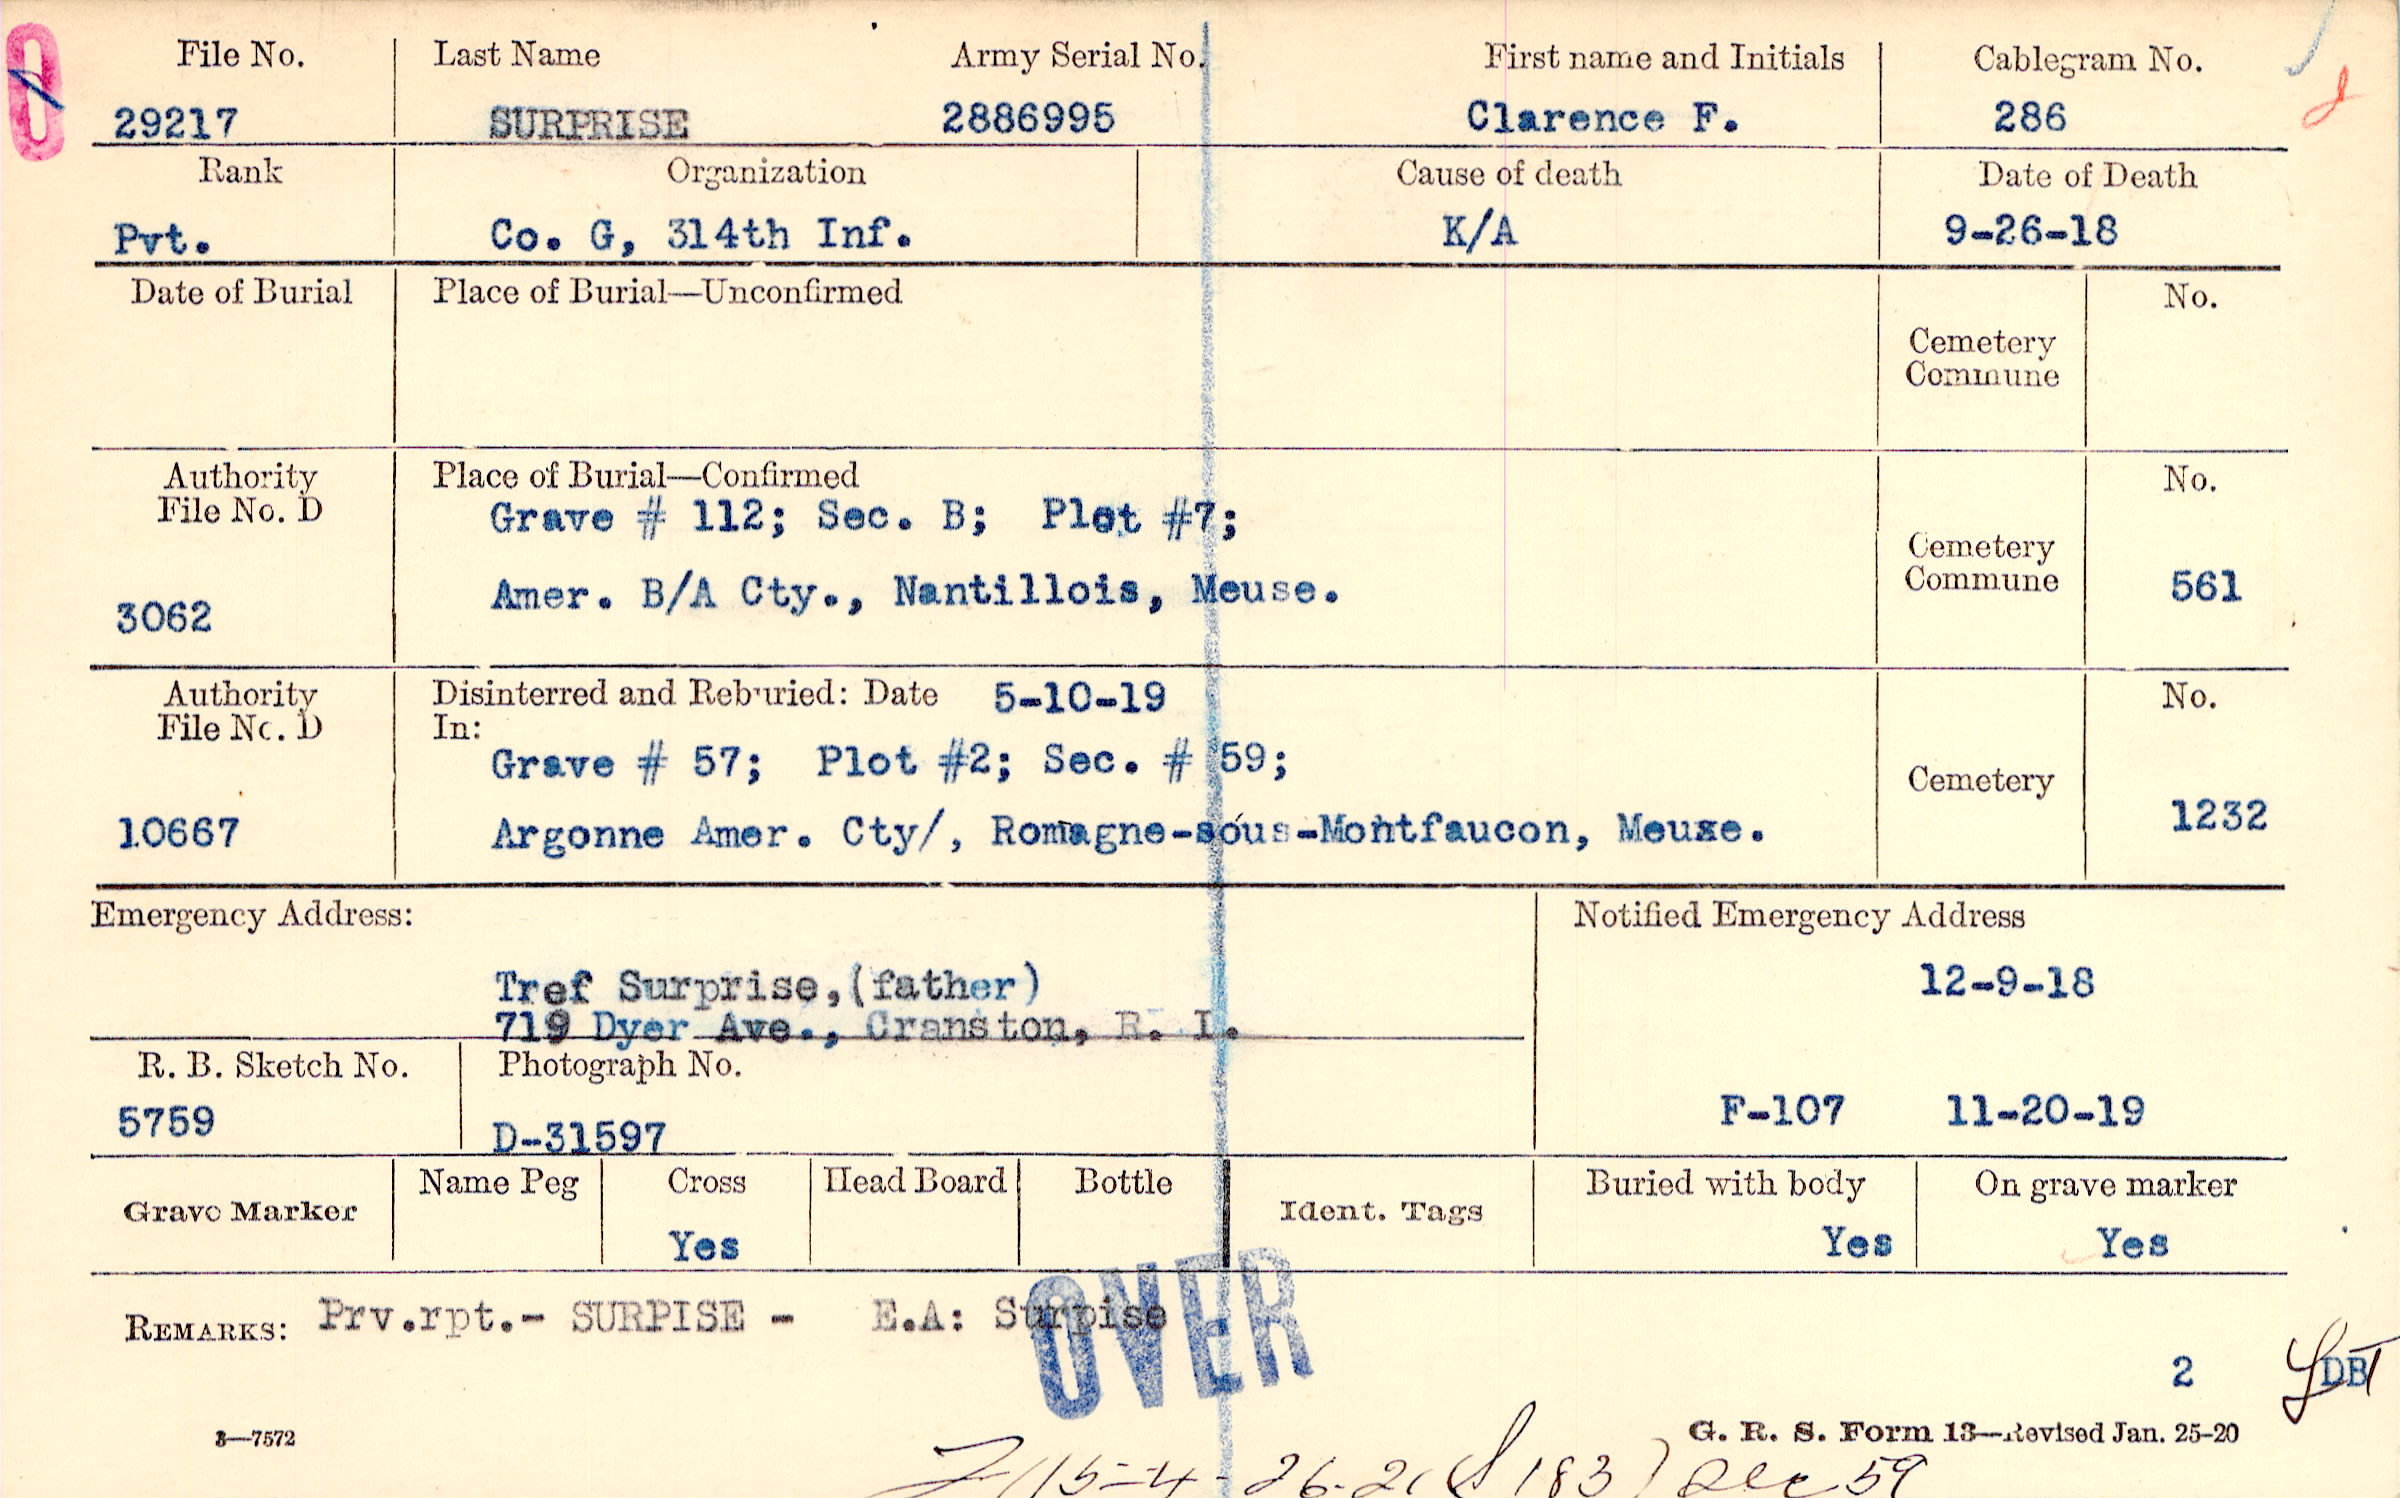 File No. Last Name Army Serial No. First name and Initials Cablegram No.
29217 SURPRISE 2886995 Clarence F. 286
Rank Organization Cause of death Date of Death
Pvt. Co. G, 314th Inf. K/A 9-26-18
Date of Burial Place of Burial—Unconfirmed No.
Cemetery
Commune
Authority Place of Burial—Confirmed No.
File No. D
Grave # 112; Sec. B; Plot #7;
Cemetery
Commune 561
Amer. B/A Cty., Nantillois, Meuse.
3062
Authority Disinterred and Reburied: Date 5-10-19 No.
File No. D In:
Grave # 57; Plot #2; Sec. # 59;
Cemetery
10667 Argonne Amer. Cty/, Romagne-sous-Montfaucon, Meuse. 1232
Emergency Address: Notified Emergency Address
Tref Surprise,(father) 12-9-18
719 Dyer Ave., Cranston, R. I.
R. B. Sketch No. Photograph No.
5759 D-31597 F-107 11-20-19
Name Peg Cross Head Board Bottle Buried with body On grave marker
Grave Marker Ident. Tags
Yes Yes Yes
REMARKS: Prv.rpt.- SURPISE - E.A: Surpise
OVER
2 DBT
3—7572 G. R. S. Form 13—Revised Jan. 25-20
15-4-26-21 183) Sec 59